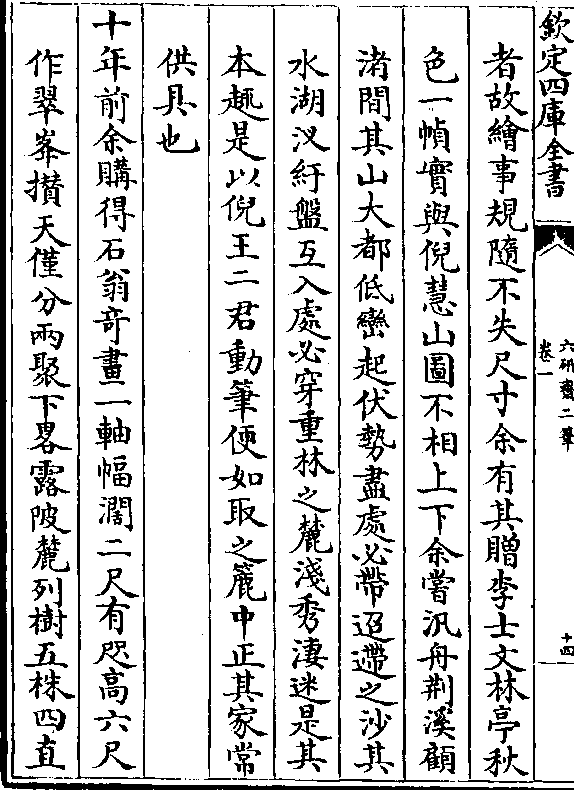 欽定四庫全書
六研齋二筆
卷一
十四
者故繪事規隨不失尺寸余有其贈李士文林亭秋
色一幀實與倪慧山圖不相上下余嘗汎舟荆溪顧
渚間其山大都低巒起伏勢盡處必帶迢遰之沙其
水湖汊紆盤互入處必穿重林之麓淺秀淒迷是其
本趣是以倪王二君動筆便如取之簏中正其家常
供具也
十年前余購得石翁竒畫一軸幅濶二尺有咫高六尺
作翠峯攅天僅分兩聚下畧露陂麓列樹五株四直